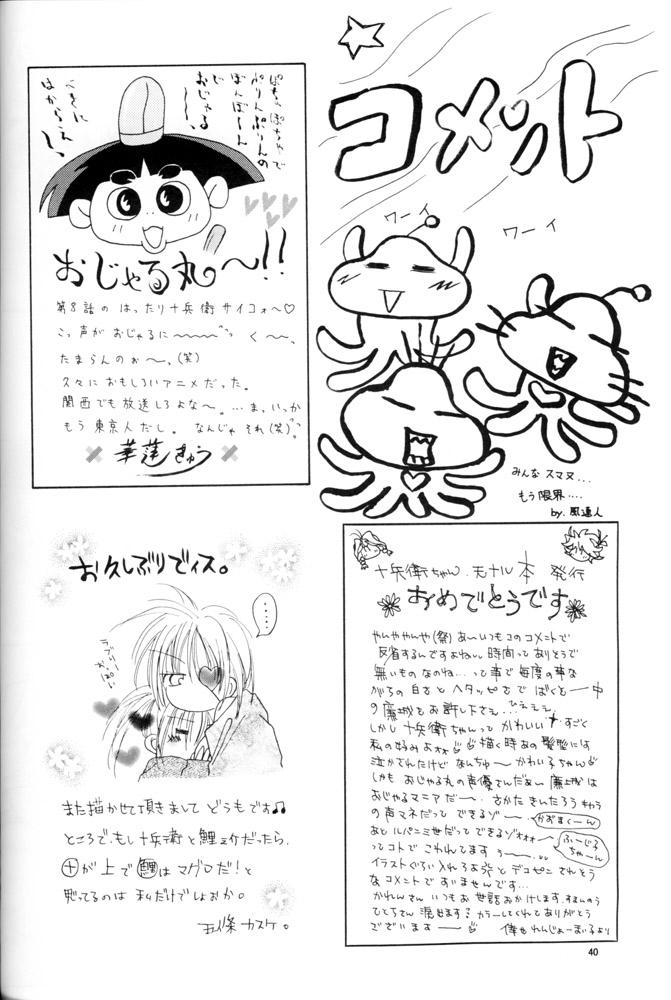 コメント
ワーイ
ワーイ
みんなスマヌ...
もう限界....
by. 風道人
ぽちゃぽちゃで
ぷりんぷりんの
ぼんぼーん
おじゃる
〜、
おじゃる丸〜!!
第8話の はったり十兵衛 サイコォ〜♡
こっ声が おじゃるに〜〜〜 く〜〜、
たまらんのぉ〜、(笑)
久々に おもしろいアニメだった。
関西でも放送しろよな〜。...ま、いっか
もう 東京人だし。 なんじゃ それ(笑)。
華蓮きゅう
お久しぶりでイス。
....
ラブリー
また描かせて頂きまして どうもです♫
ところで、もし十兵衛と鯉ノ介だったら、
十が上で鯉はマグロだ!と
思ってるのは 私だけでしょおか。
五條カスケ。
十兵衛ちゃん.モナル本 発行
おめでとうです
やんややんや(祭) あ〜いつもコのコメントで
反省するんですよねぃ。時間ってありそうで
無いものなのね...って事で毎度の事な
がらの白さとヘタッピさでばくとー中
の廉城をお許し下さえ...ひえええ
しかし十兵衛ちゃんって かわいいすごく
私の好みよ 描く時あの髪型には
泣かされたけどなんちゅーかわいコちゃん
しかもおじゃる丸の声優さんだぁぃ 廉城は
おじゃるマニアだー。さかたきんたろうキャラ
の声マネだってできるゾー かおまくーん
あとルパン三世だってできるゾ ふーじこちゃーん
ってコトでこわれてます
イラストぐらい入れろよ とデコピンされそう
なコメントですいませんです...
かれんさん いつもお世話おかけします。
カラーしてくれてありがとう
でございますー
40